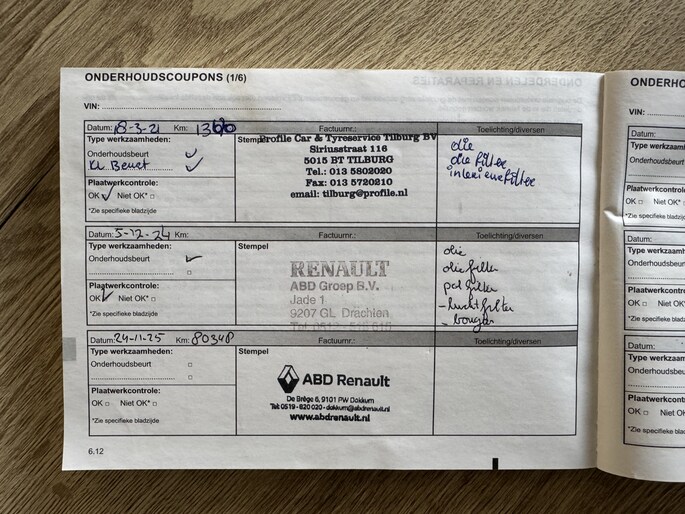 ONDERHOUDSCOUPONS (1/6)
VIN:
Datum: 18-3-21 Km:
Factuurnr.:
Toelichting/diversen
Type werkzaamheden:
Onderhoudsbeurt
Kl Beurt
Plaatwerkcontrole:
OK Niet OK*
*Zie specifieke bladzijde
Stempel
Profile Car & Tyreservice Tilburg BV
Siriusstraat 116
5015 BT TILBURG
Tel.: 013 5802020
Fax: 013 5720210
email: tilburg@profile.nl
olie
olie filter
interieurfilter
Datum: 5-12-24 Km:
Factuurnr.:
Toelichting/diversen
Type werkzaamheden:
Onderhoudsbeurt
Plaatwerkcontrole:
OK Niet OK*
*Zie specifieke bladzijde
Stempel
RENAULT
ABD Groep B.V.
Jade 1
9207 GL Drachten
olie
oliefilter
pol filter
- luchtfilter
- bougies
Datum: 24-11-25 Km: 80348
Factuurnr.:
Toelichting/diversen
Type werkzaamheden:
Onderhoudsbeurt
Plaatwerkcontrole:
OK Niet OK*
*Zie specifieke bladzijde
Stempel
ABD Renault
De Brêge 6, 9101 PW Dokkum
Tel: 0519 - 820 020 - dokkum@abdrenault.nl
www.abdrenault.nl
6.12
ONDERHO
VIN:
Datum:
Type werkzaam
Onderhoudsbeurt
Plaatwerkcontrole:
OK Niet OK
*Zie specifieke bladz
Datum:
Type werkzaamh
Onderhoudsbeu
Plaatwerkcontro
OK Niet O
*Zie specifieke bladz
Datum:
Type werkzaam
Onderhoudsbeu
Plaatwerkcontro
OK Niet O
*Zie specifieke blad